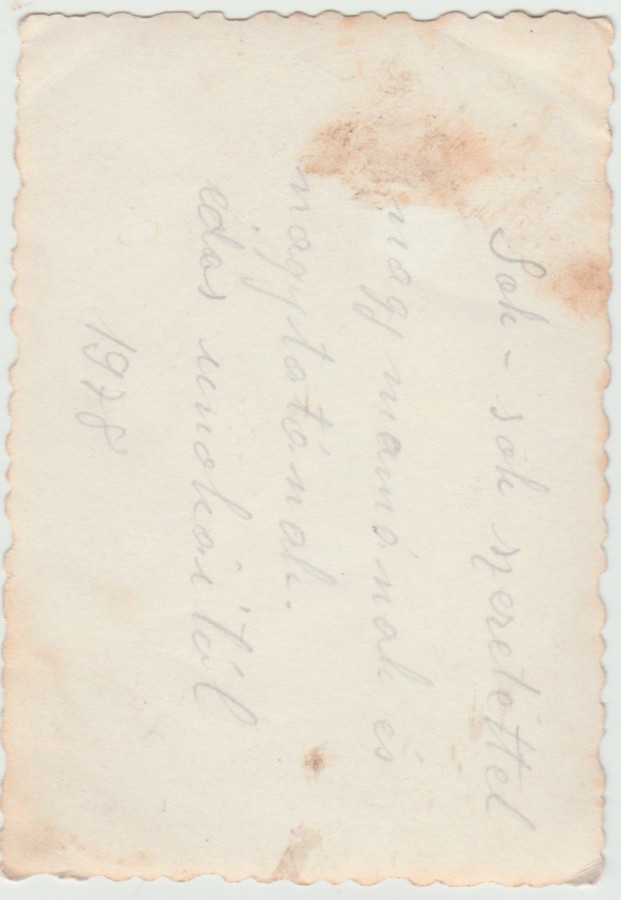 Sok - sok szeretettel
nagymamónak és
nagytatónak.
édes unokáitól
1978